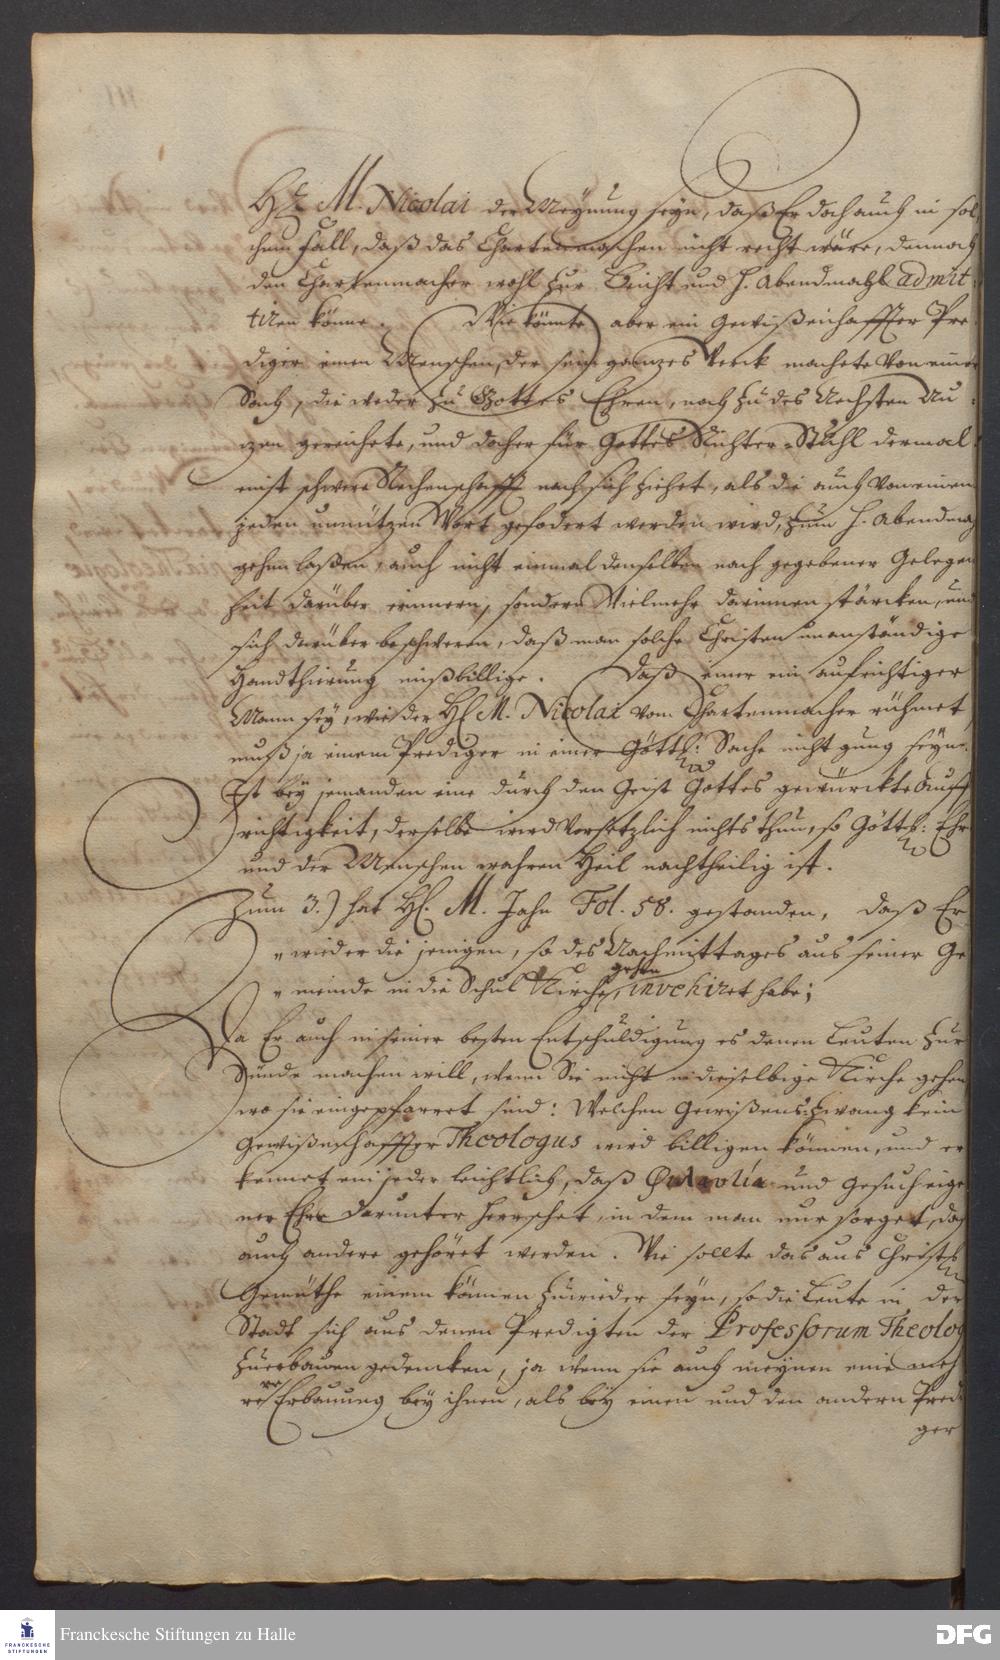 Hr. M. Nicolai der Meynung seyn, daß Er doch auch in sol
chem Fall, daß das Chartenmachen nicht recht wäre, dennoch
den Chartenmacher wohl zur Beicht und H. Abendmahl admit
tiren könne. Wie könnte aber ein Gewißenhaffter Pre
diger einen Menschen, der sein ganzes Werck machete von einer
Sach, die weder zu Gottes Ehren, noch zu des Nechsten Nu
zen gereichete, und daher für Gottes Richter-Stuhl dermal
einst schwere Rechenschafft nach sich ziehet, als die auch von einem
jeden unnützen Wort gefodert werden wird, zum H. Abendmahl
gehen laßen, auch nicht einmal denselben nach gegebener Gelegen
heit darüber erinnern, sondern Vielmehr darinnen stärcken, und
sich darüber beschweren, daß man solche Christen unanständige
Handthierung mißbillige. Daß einer ein aufrichtiger
Mann sey, wie der H. M. Nicolai vom Chartenmacher rühmet,
muß ja einem Prediger in einer Göttl: Sache nicht gnug seyn.
Ist bey jemanden eine durch den Geist Gottes gewürckte Auff
richtigkeit, derselbe wird Vorsetzlich nichts thun, so Göttl: Ehr
und der Menschen wahren Heil nachtheilig ist.
Zum 3.) hat H. M. Jahn Fol. 58. gestanden, daß Er
" wieder die jenigen, so des Nachmittages aus seiner Ge
" meinde in die Schul Kirche gehen, invehiret habe;
Da Er auch in seiner besten Entschuldigung es denen Leuten zur
Sünde machen will, wenn Sie nicht in dieselbige Kirche gehen
wo sie eingepfarret sind: Welchen Gewißens-Zwang kein
Gewißenhaffter Theologus wird billigen können, und er
kennet ein jeder leichtlich, daß und Gesuch eige
ner Ehre darunter herrschet, in dem man nur sorget, daß
auch andere gehöret werden. Wie sollte das aus Christl:
Gemüthe einem können zuwieder seyn, so die Leute in der
Stadt sich aus denen Predigten der Professorum Theolog
zu erbauen gedencken, ja wenn sie auch meynen eine meh
rere Erbauung bey ihnen, als bey einen und den andern Predi
ger
Franckesche Stiftungen zu Halle
FRANCKESCHE
STIFTUNGEN
DFG